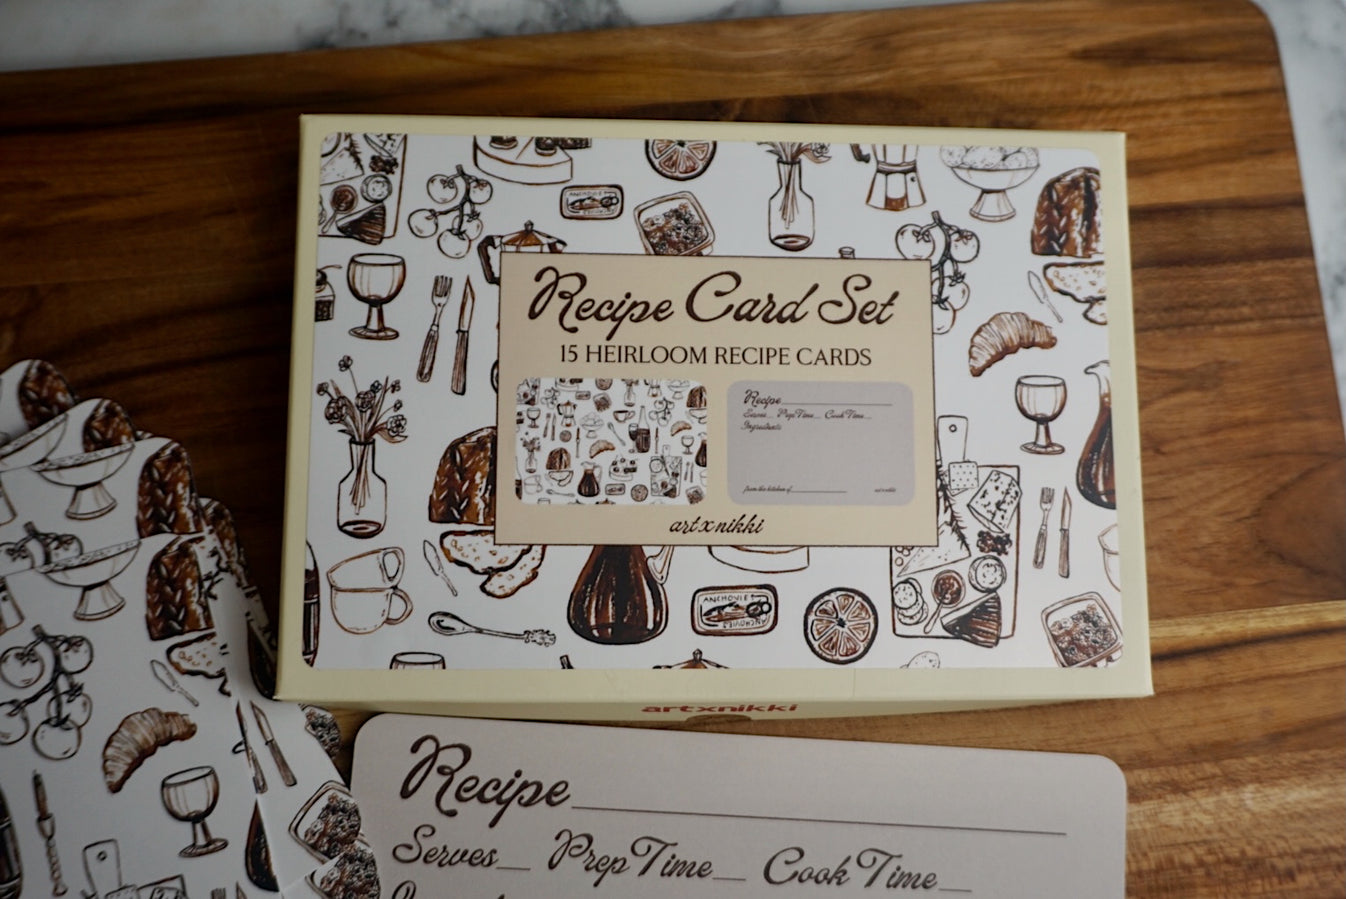 ANCHOVIE
Recipe Card Set
15 HEIRLOOM RECIPE CARDS
Recipe
Serves Prep Time Cook Time
Ingredients
from the kitchen of
artxnikki
ANCHOVIE
ANCHOVIE
artxnikki
Recipe
Serves Prep Time Cook Time